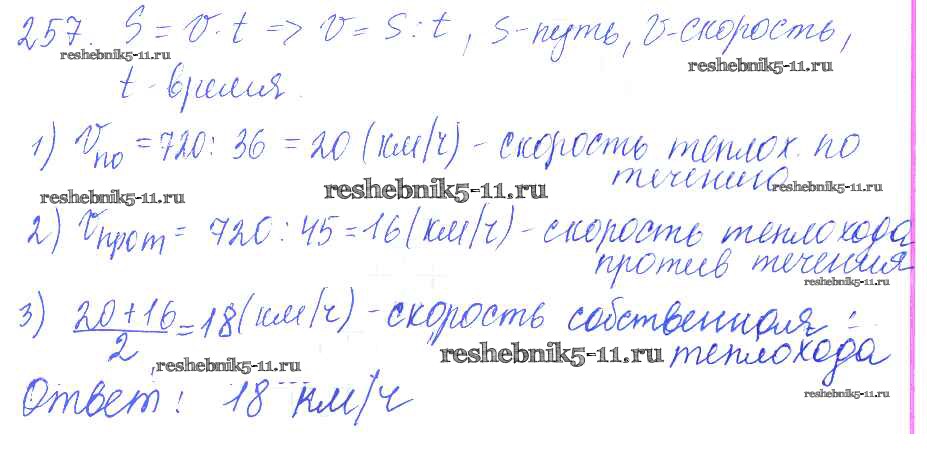 257. S = v · t => v = S : t, S - путь, v - скорость,
reshebnik5-11.ru reshebnik5-11.ru
t - время.
1) v по = 720 : 36 = 20 (км/ч) - скорость теплох. по
течению
reshebnik5-11.ru reshebnik5-11.ru reshebnik5-11.ru
2) v прот = 720 : 45 = 16 (км/ч) - скорость теплохода
против течения
reshebnik5-11.ru
3) (20 + 16)/2 = 18 (км/ч) - скорость собственная
теплохода
reshebnik5-11.ru reshebnik5-11.ru
Ответ: 18 км/ч
reshebnik5-11.ru